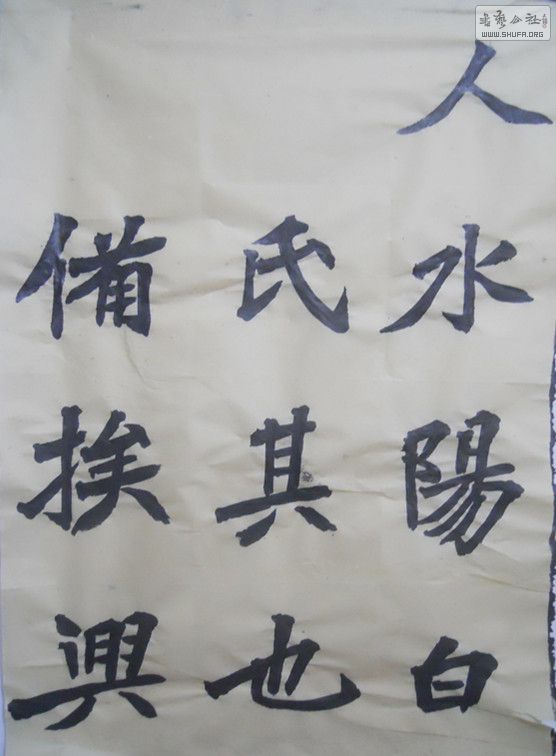 人水陽白
氏其也
備挨興
書藝公社
WWW.SHUFA.ORG